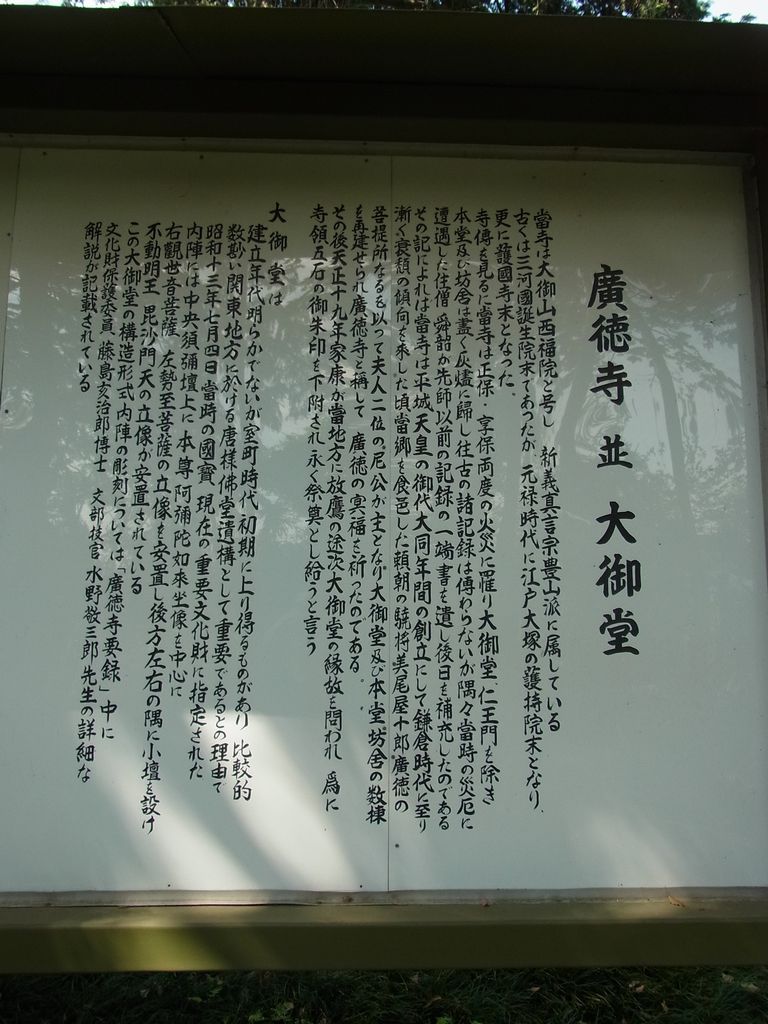 廣徳寺 並 大御堂
當寺は大御山西福院と号し 新義真言宗豊山派に属している
古くは三河國誕生院末であつたが、元禄時代に江戸大塚の護持院末となり、
更に護國寺末となった。
寺傳を見るに當寺は正保・享保両度の火災に罹り大御堂、仁王門を除き
本堂及び坊舎は盡く灰燼に歸し往古の諸記録は傳わらないが隅々當時の災厄に
遭遇した住僧 舜韶が先師以前の記録の一端書を遺し後日を補充したのである
その記によれは當寺は平城天皇の御代大同年間の創立にして鎌倉時代に至り
漸く衰頽の傾向を来した頃當郷を食邑した頼朝の驍将美尾屋十郎廣徳の
菩提所なるを以って夫人二位の尼公が主となり大御堂及び本堂坊舎の数棟
を再建せられ廣徳寺と稱して 廣徳の冥福を祈ったのである。
その後天正十九年家康が當地方に放鷹の途次大御堂の縁故を問われ 為に
寺領五石の御朱印を下附され永く祭奠とし給うと言う
大御堂は
建立年代明らかでないが室町時代初期に上り得るものがあり 比較的
数尠い関東地方に於ける唐様佛堂遺構として重要であるとの理由で
昭和十三年七月四日當時の國寶 現在の重要文化財に指定された
内陣には中央須彌壇上に本尊阿彌陀如來坐像を中心に
右觀世音菩薩 左勢至菩薩の立像を安置し後方左右の隅に小壇を設け
不動明王 毘沙門天の立像が安置されている
この大御堂の構造形式内陣の彫刻については「廣徳寺要録」中に
文化財保護委員 藤島亥治郎博士 文部技官 水野敬三郎先生の詳細な
解説が記載されている